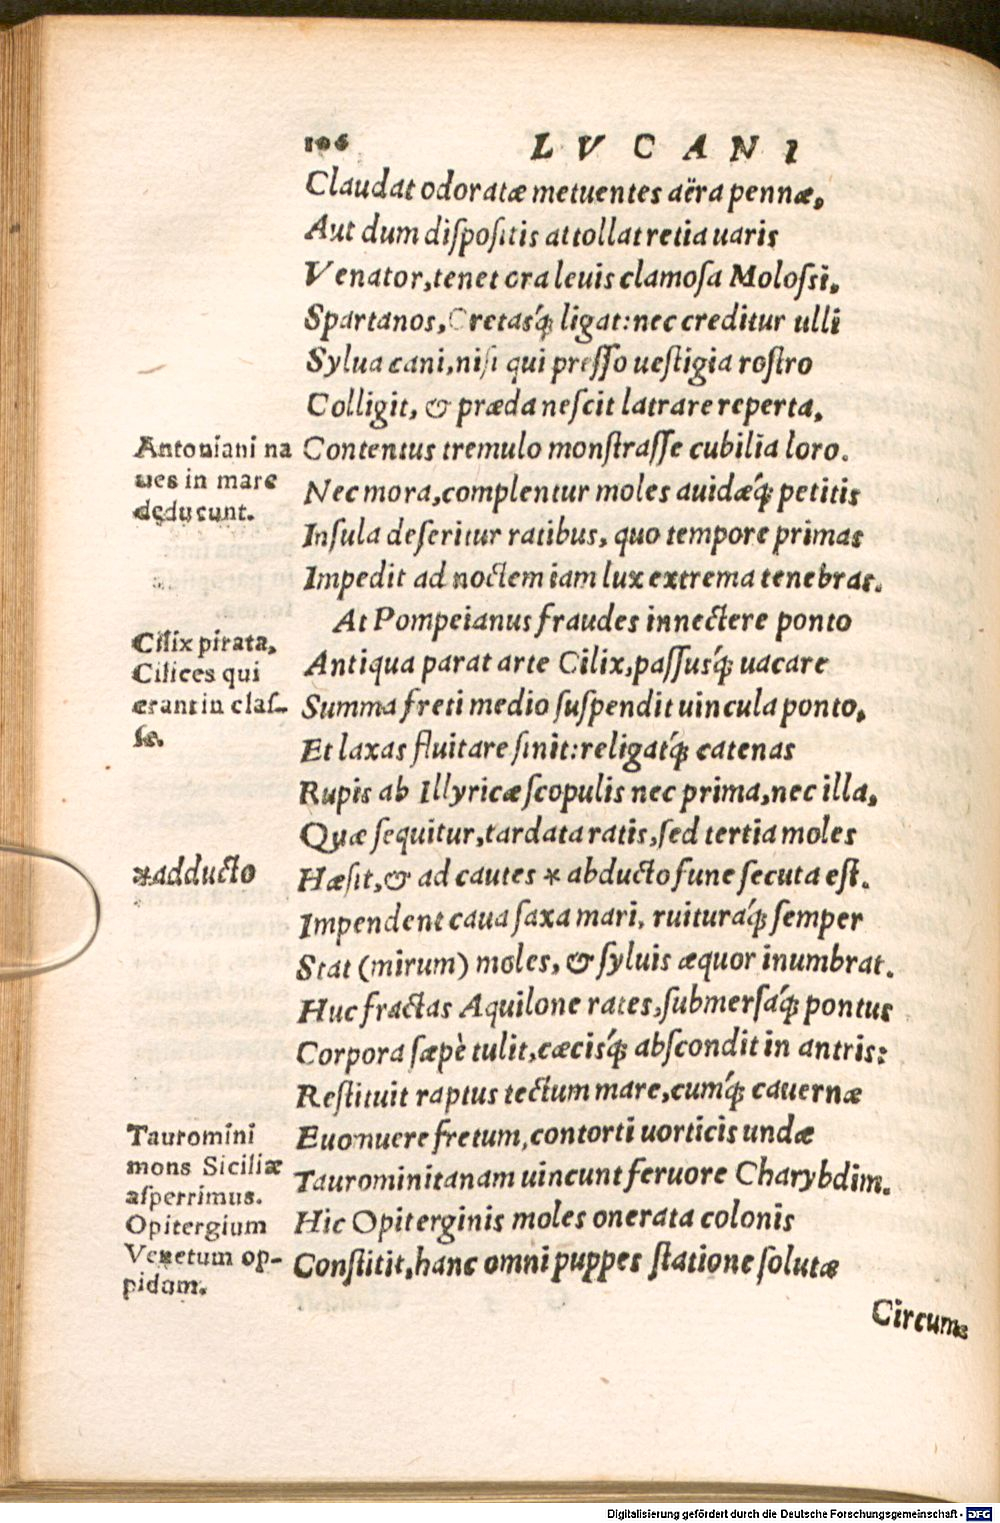 106 LVCANI
Claudat odoratæ metuentes aëra pennæ,
Aut dum diſpoſitis attollat retia uaris
Venator, tenet ora leuis clamoſa Moloſsi,
Spartanos, Cretasq́; ligat: nec creditur ulli
Sylua cani, niſi qui preſſo ueſtigia roſtro
Colligit, & præda neſcit latrare reperta,
Contentus tremulo monſtraſſe cubilia loro.
Nec mora, complentur moles auidæq́; petitis
Inſula deſeritur ratibus, quo tempore primas
Impedit ad noctem iam lux extrema tenebras.
At Pompeianus fraudes innectere ponto
Antiqua parat arte Cilix, paſſusq́; uacare
Summa freti medio ſuſpendit uincula ponto,
Et laxas fluitare ſinit: religatq́; catenas
Rupis ab Illyricæ ſcopulis nec prima, nec illa,
Quæ ſequitur, tardata ratis, ſed tertia moles
Hæſit, & ad cautes * abducto fune ſecuta eſt.
Impendent caua ſaxa mari, ruituraq́; ſemper
Stat (mirum) moles, & ſyluis æquor inumbrat.
Huc fractas Aquilone rates, ſubmerſaq́; pontus
Corpora ſæpè tulit, cæcisq́; abſcondit in antris:
Reſtituit raptus tectum mare, cumq́; cauernæ
Euomuere fretum, contorti uorticis undæ
Taurominitanam uincunt feruore Charybdim.
Hic Opiterginis moles onerata colonis
Conſtitit, hanc omni puppes ſtatione ſolutæ
Circum-
Antoniani na
ues in mare
deducunt.
Cilix pirata,
Cilices qui
erant in claſ-
ſe.
*adducto
Tauromini
mons Siciliæ
aſperrimus.
Opitergium
Venetum op-
pidum.
Digitalisierung gefördert durch die Deutsche Forschungsgemeinschaft - DFG